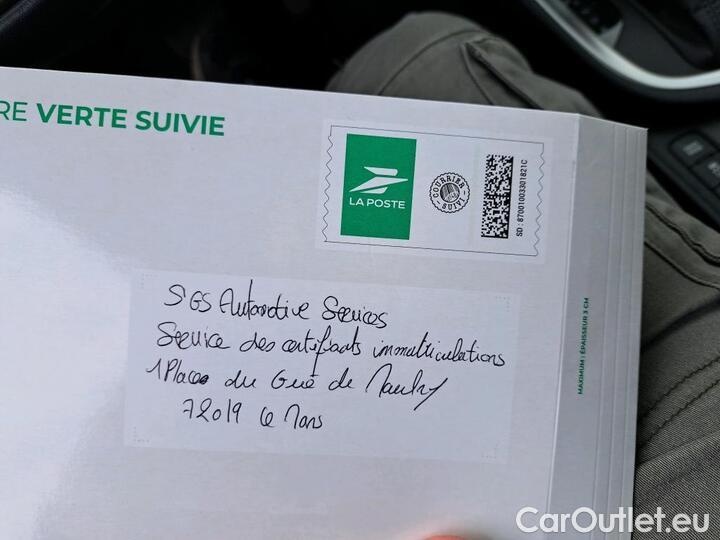 RE VERTE SUIVIE
LA POSTE
COURRIER
SUIVI
SD : 87001003301821C
SGS Automotive Services
Service des certificats immatriculations
1 Place du Gué de Maulny
72019 Le Mans
MAXIMUM : ÉPAISSEUR 3 CM
CarOutlet.eu